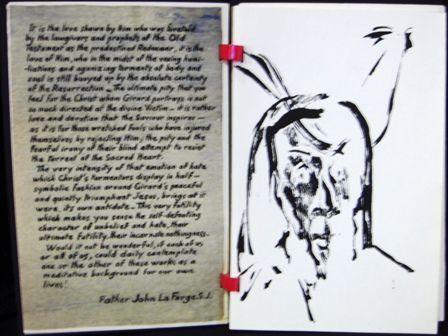 It is the love shown by Him who was foretold
by the lawgivers and prophets of the Old
Testament as the predestined Redeemer, it is the
love of Him, who in the midst of the vexing humi-
liations and agonizing torments of body and
soul is still buoyed up by the absolute certainty
of the Resurrection — The ultimate pity that you
feel for the Christ whom Girard portrays is not
so much directed at the divine Victim — it is rather
love and devotion that the Saviour inspires —
as it is for those wretched fools who have injured
themselves by rejecting Him; the pity and the
fearful irony of their blind attempt to resist
the of the Sacred Heart.
The very intensity of that emotion of hate
which Christ's tormentors display in half-
symbolic fashion around Girard's peaceful
and quietly triumphant Jesus, brings as it
were, its own antidote — This very futility
which makes you sense the self-defeating
character of unbelief and hate, their
ultimate futility, their incarnate nothingness.
Would it not be wonderful, if each of us
or all of us, could daily contemplate
one or the other of these works as a
meditative background for our own
lives!
Father John La Farge, S.J.